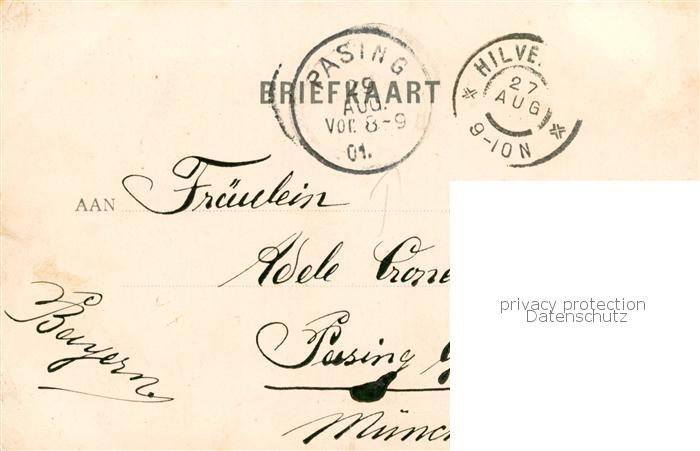 PASING
29
AUG.
Vor. 8-9
01.
BRIEFKAART
HILVE
27
AUG
9-10N
AAN Fräulein
Adele Crone
Bayern.
Pasing
Münc
privacy protection
Datenschutz